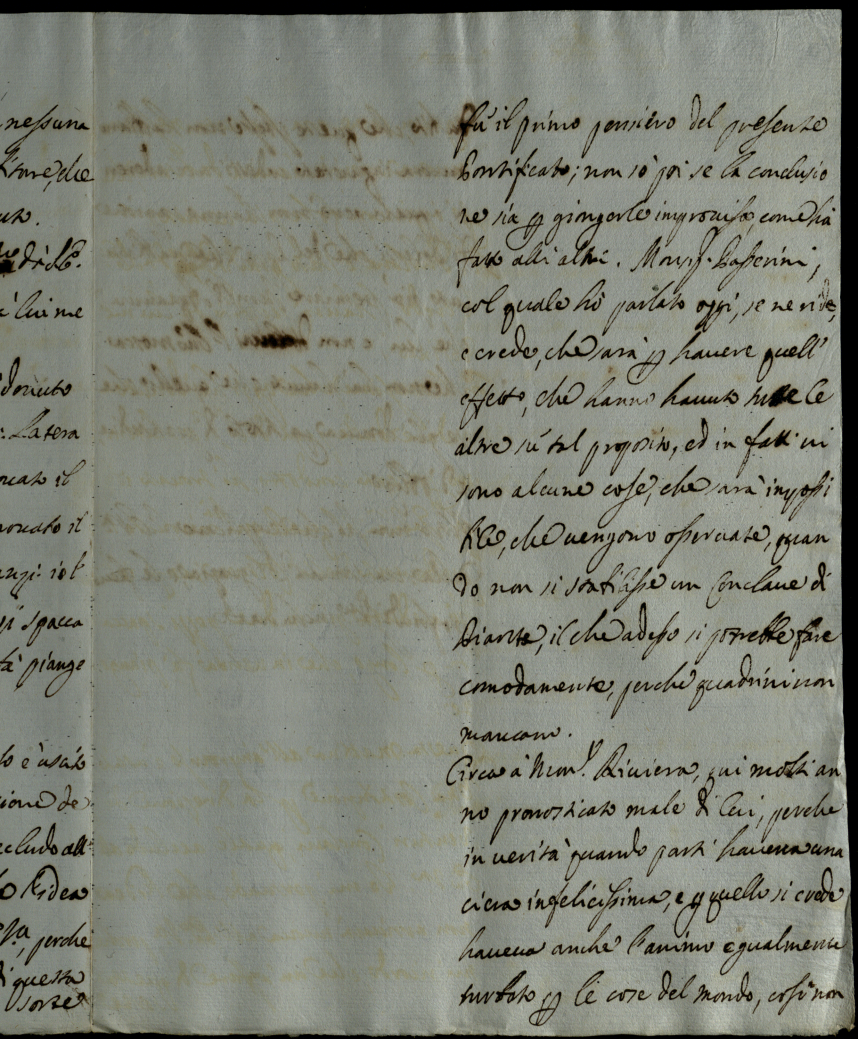 nessuna
ture, che
uto.
di N.
lui me
douuto
Latera
ucato il
ouato il
anzi: io l'
spacca
piange
è uscito
zione de
ecludo all'
l'idea
perche
di questa
sorte
fù il primo pensiero del presente
Pontificato; non sò poi se la conclusio
ne sia p giongerle improuisa, come hà
fatto alli altri. Mons.r Passerini,
col quale hò parlato oggi, se ne ride,
e crede, che sarà p hauere quell'
effetto, che hanno hauuto tutte le
altre sù tal proposito, ed in fatti ui
sono alcune cose, che sarà impossi
bile, che uengono osseruate, quan
do non si stabilisse un Conclaue di
Diarite, il che adesso si potrebbe fare
comodamente, perche quadrini non
mancano.
Circa à Mons.r Riuiera, qui molti an
no pronosticato male di lui, perche
in uerità quando partì haueua una
ciera infelicissima, e p quello si crede
haueua anche l'animo egualmente
turbato p le cose del mondo, così non